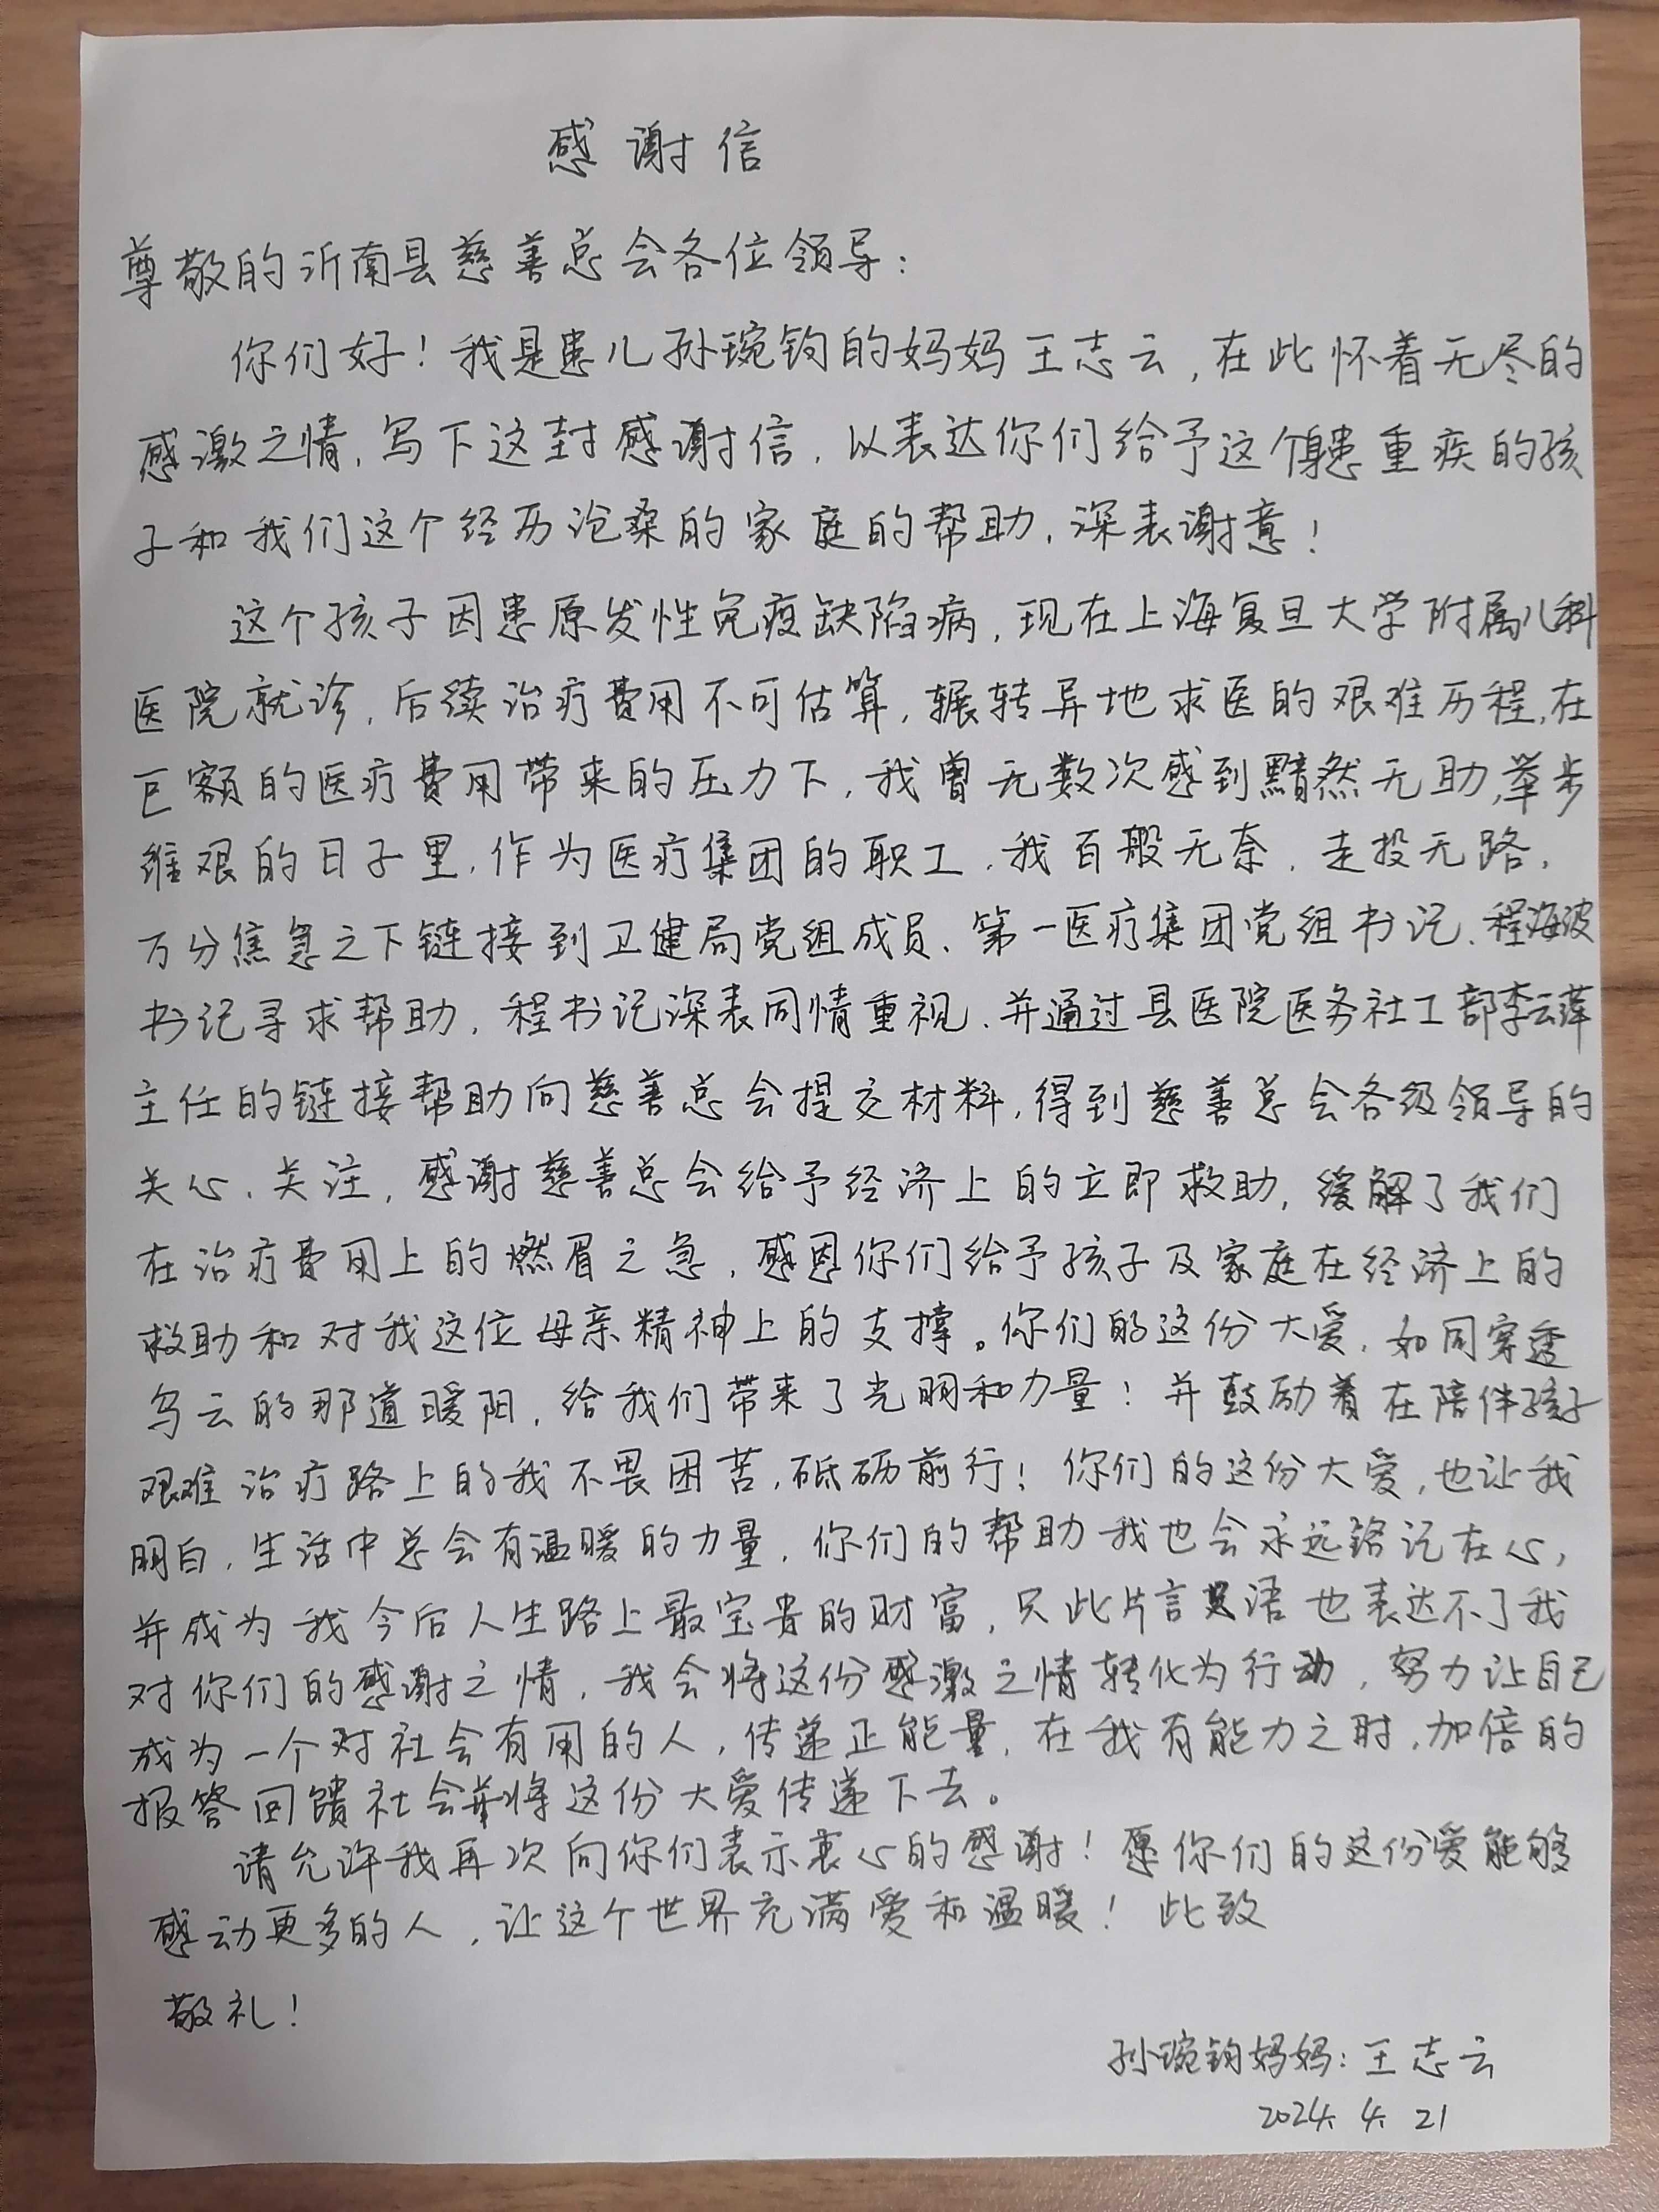 感谢信
尊敬的沂南县慈善总会各位领导：
你们好！我是患儿孙琬钧的妈妈王志云，在此怀着无尽的
感激之情，写下这封感谢信，以表达你们给予这个身患重疾的孩
子和我们这个经历沧桑的家庭的帮助，深表谢意！
这个孩子因患原发性免疫缺陷病，现在上海复旦大学附属儿科
医院就诊，后续治疗费用不可估算，辗转异地求医的艰难历程，在
巨额的医疗费用带来的压力下，我曾无数次感到黯然无助，举步
维艰的日子里，作为医疗集团的职工，我百般无奈，走投无路，
万分焦急之下链接到卫健局党组成员、第一医疗集团党组书记、程海波
书记寻求帮助，程书记深表同情重视、并通过县医院医务社工部李云萍
主任的链接帮助向慈善总会提交材料，得到慈善总会各级领导的
关心、关注，感谢慈善总会给予经济上的立即救助，缓解了我们
在治疗费用上的燃眉之急，感恩你们给予孩子及家庭在经济上的
救助和对我这位母亲精神上的支撑。你们的这份大爱，如同穿透
乌云的那道暖阳，给我们带来了光明和力量！并鼓励着在陪伴孩子
艰难治疗路上的我不畏困苦，砥砺前行！你们的这份大爱，也让我
明白，生活中总会有温暖的力量，你们的帮助我也会永远铭记在心，
并成为我今后人生路上最宝贵的财富，只此片言只语也表达不了我
对你们的感谢之情，我会将这份感激之情转化为行动，努力让自己
成为一个对社会有用的人，传递正能量，在我有能力之时，加倍的
报答回馈社会并将这份大爱传递下去。
请允许我再次向你们表示衷心的感谢！愿你们的这份爱能够
感动更多的人，让这个世界充满爱和温暖！此致
敬礼！
孙琬钧妈妈：王志云
2024.4.21